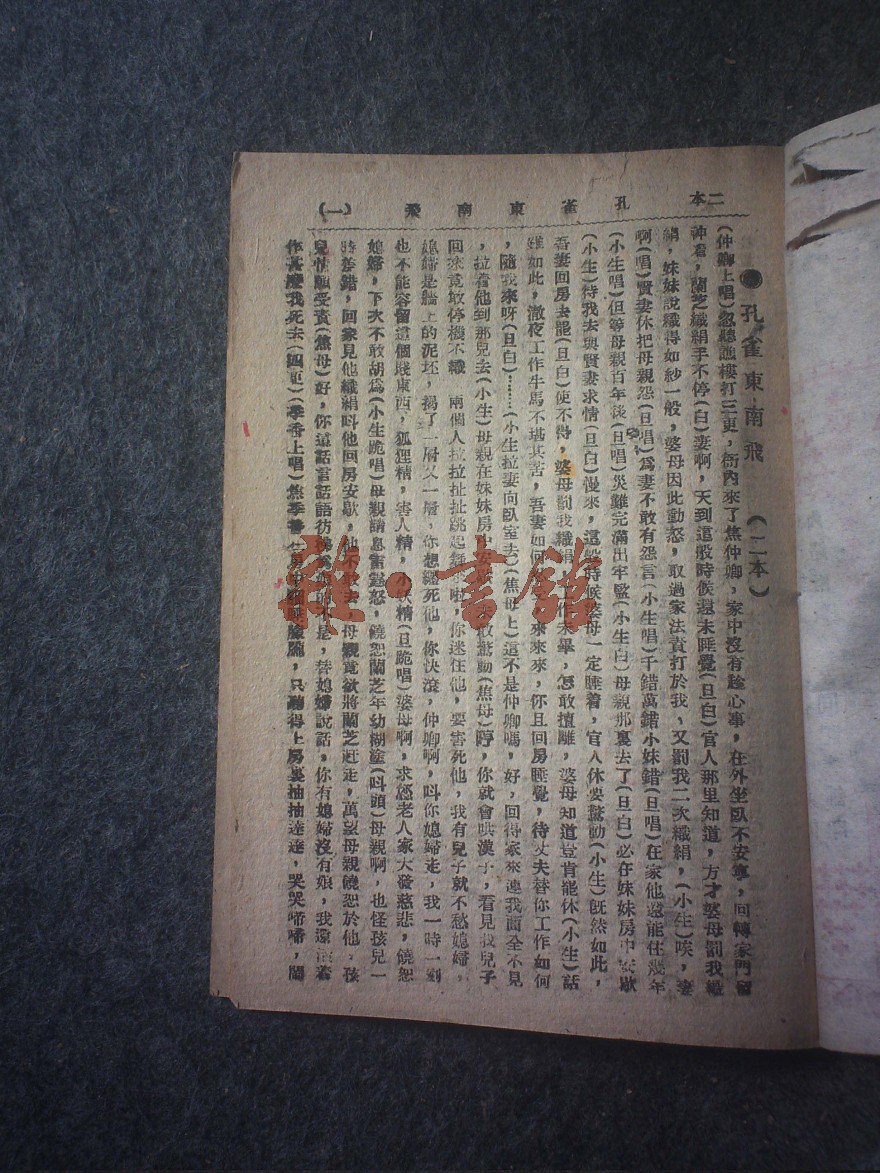 二本 孔雀東南飛 (一)
●孔雀東南飛 (二本)
(仲卿上唱)忽聽譙樓打三更，衙內來了焦仲卿，家中沒有餘心事，在外坐臥不安寧，回轉家門留
神看，蘭芝織絹手不停(白)妻啊，天到這般時候還未睡覺(旦白)官人那里知道，方才婆母罰我織
絹，妹妹說織得如紗一般，婆母因此動怒，取過家法責打於我，又罰我二次織絹，(小生)唉，妻
啊(唱)賢妻休把母親怨(旦唱)爲妻不敢有怨言(小生唱)千錯萬錯小妹錯(旦唱)在家他還能住幾年
(小生唱)但等母親百年後(旦唱)災難完滿出牢監(小生白)母親那裏去了(旦白)必在妹妹房中安歇
(小生)待我去與賢妻求情(旦白)慢來，這般時候婆母一定睡着，官人休要驚動(小生)旣然如此，
吾妻回房去罷(旦白)使不得，婆母罰我織絹，工作未畢，怎敢擅離，婆母知道豈肯罷休(小生)話
雖如此，澈夜工作牛馬不堪其苦，吾妻如何 來來來，你且回房睡覺，待丈夫替你工作如何
，隨我來呀(旦白)……(小生拉妻向臥室去)(焦母上)這不是仲卿嗎，好，回得家來連我面全不見
，拉着他到那兒去(小生)母親在妹妹房中安歇，未敢驚動(焦母)哼，你就會哄漢子，看見我兒子
回來竟敢停機不織 兩個人拉拉扯扯跳起舞來啦，你迷住他，要害死他，我有兒子就不愁媳婦，
媳婦是牆上的泥坯，揭了一層又一層，你想纏死他，你快滾，仲卿啊，叫你媳婦走，我一時一刻
也不能容留這個賤東西，狐狸精，害人精，小妖精(旦跪唱)婆母啊，求您老人家大發慈悲，饒恕
媳婦，下次不敢胡爲(小生跪唱)母親請息雷霆怒，饒恕蘭芝年幼糊塗(叫頭)母親啊，也怪孩兒一
時差錯，回家見他織絹叫他回房安歇，他不 去，母親竟欲將蘭芝赶走，萬望母親饒恕於他，孩
兒情願受責(焦母)好，你這話言話語彷彿 的不是，替媳婦說話，你有媳婦沒有娘，我還活着
作甚麼我死去(四更)(季香上唱)焦季香 房中 朦朧，只聽得上房裏抽抽達達，哭哭啼啼，鬧